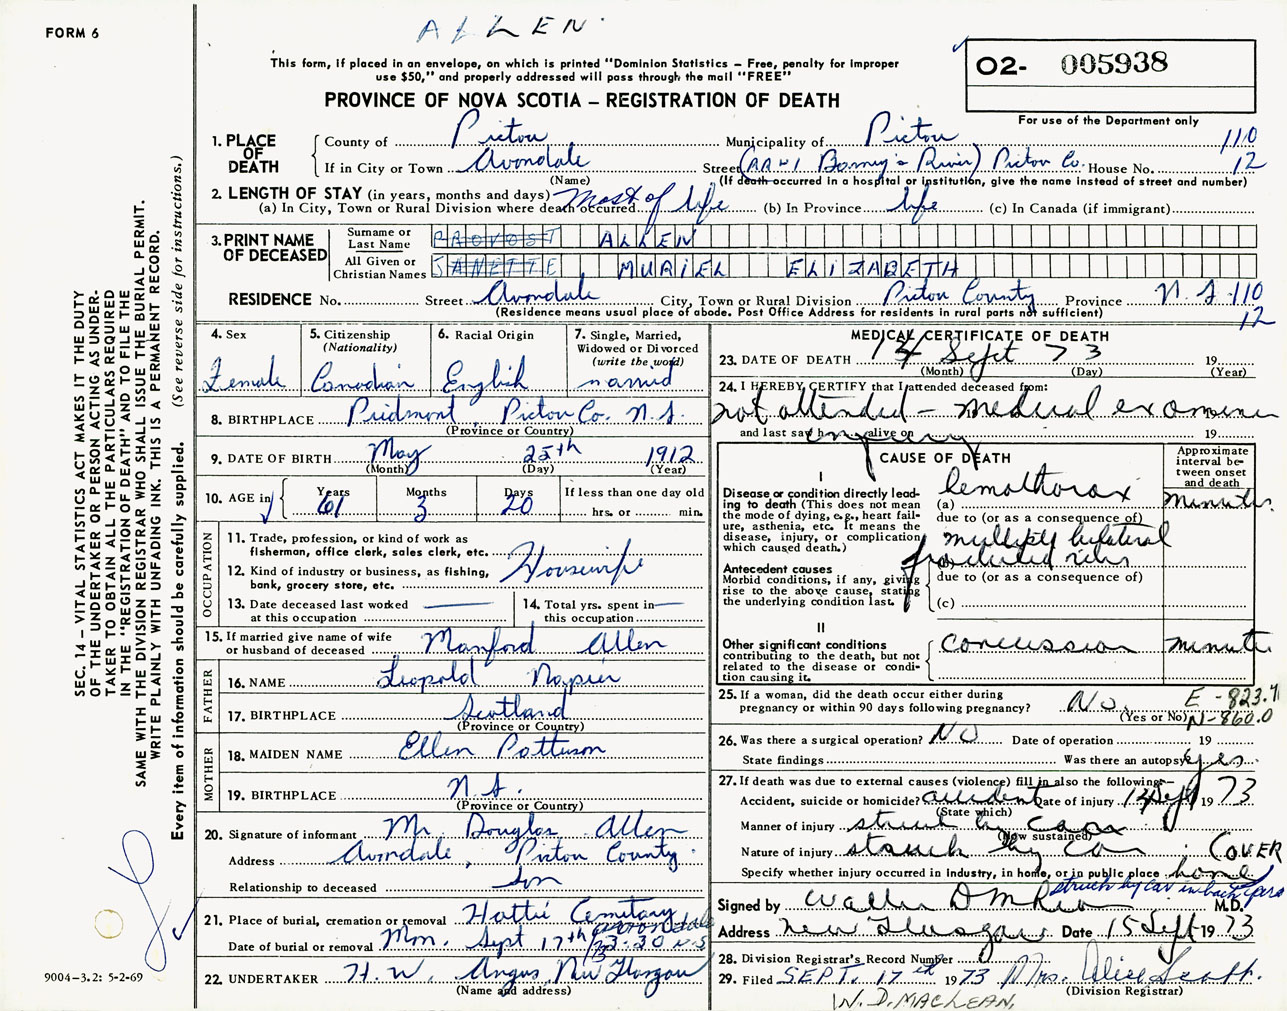 FORM 6
ALLEN
This form, if placed in an envelope, on which is printed "Dominion Statistics – Free, penalty for improper
use $50," and properly addressed will pass through the mail "FREE"
PROVINCE OF NOVA SCOTIA – REGISTRATION OF DEATH
02- 005938
For use of the Department only
1. PLACE OF DEATH
County of Pictou Municipality of Pictou 110
If in City or Town Avondale Street (RR#1 Barney's River) Pictou Co. House No. 12
(Name) (If death occurred in a hospital or institution, give the name instead of street and number)
2. LENGTH OF STAY (in years, months and days)
(a) In City, Town or Rural Division where death occurred Most of life (b) In Province life (c) In Canada (if immigrant)
3. PRINT NAME OF DECEASED
Surname or Last Name PROVOST ALLEN
All Given or Christian Names JANETTE MURIEL ELIZABETH
RESIDENCE No. Street Avondale City, Town or Rural Division Pictou County Province N.S. 110
(Residence means usual place of abode. Post Office Address for residents in rural parts not sufficient) 12
SEC. 14 – VITAL STATISTICS ACT MAKES IT THE DUTY
OF THE UNDERTAKER OR PERSON ACTING AS UNDER-
TAKER TO OBTAIN ALL THE PARTICULARS REQUIRED
IN THE "REGISTRATION OF DEATH" AND TO FILE THE
SAME WITH THE DIVISION REGISTRAR WHO SHALL ISSUE THE BURIAL PERMIT.
WRITE PLAINLY WITH UNFADING INK. THIS IS A PERMANENT RECORD.
Every item of information should be carefully supplied. (See reverse side for instructions.)
4. Sex Female
5. Citizenship (Nationality) Canadian
6. Racial Origin English
7. Single, Married, Widowed or Divorced (write the word) married
8. BIRTHPLACE Piedmont Pictou Co. N.S.
(Province or Country)
9. DATE OF BIRTH May 25th 1912
(Month) (Day) (Year)
10. AGE in Years 61 Months 3 Days 20 If less than one day old
hrs. or min.
OCCUPATION
11. Trade, profession, or kind of work as
fisherman, office clerk, sales clerk, etc. Housewife
12. Kind of industry or business, as fishing,
bank, grocery store, etc.
13. Date deceased last worked
at this occupation
14. Total yrs. spent in
this occupation
15. If married give name of wife
or husband of deceased Manford Allen
FATHER
16. NAME Leopold Napier
17. BIRTHPLACE Scotland
(Province or Country)
MOTHER
18. MAIDEN NAME Ellen Patterson
19. BIRTHPLACE N.S.
(Province or Country)
20. Signature of informant Mr. Douglas Allen
Address Avondale, Pictou County
Relationship to deceased Son
21. Place of burial, cremation or removal Hattie Cemetary
Date of burial or removal Mon. Sept 17th
22. UNDERTAKER H. W. Angus, New Glasgow
(Name and address)
9004–3.2: 5-2-69
MEDICAL CERTIFICATE OF DEATH
23. DATE OF DEATH 14 Sept 73 19
(Month) (Day) (Year)
24. I HEREBY CERTIFY that I attended deceased from:
not attended – medical examiner
and last saw h alive on 19
inquiry
CAUSE OF DEATH
Approximate interval between onset and death
I
Disease or condition directly lead-
ing to death (This does not mean
the mode of dying, e.g., heart fail-
ure, asthenia, etc. It means the
disease, injury, or complication
which caused death.)
(a) hemothorax minutes
due to (or as a consequence of)
multiple bilateral
fractured ribs
Antecedent causes
Morbid conditions, if any, giving
rise to the above cause, stating
the underlying condition last.
due to (or as a consequence of)
(c)
II
Other significant conditions
contributing to the death, but not
related to the disease or condi-
tion causing it.
concussion minutes
25. If a woman, did the death occur either during
pregnancy or within 90 days following pregnancy? No.
(Yes or No)
E-823.7
N-860.0
26. Was there a surgical operation? No Date of operation 19
State findings Was there an autopsy yes
27. If death was due to external causes (violence) fill in also the following:–
Accident, suicide or homicide? accident Date of injury 14 Sept 1973
(State which)
Manner of injury struck by car
(How sustained)
Nature of injury struck by car (OVER
Specify whether injury occurred in industry, in home, or in public place home
struck by car in
Signed by M.D.
Address New Glasgow Date 15 Sept 1973
28. Division Registrar's Record Number
29. Filed SEPT. 17th 1973 Mrs. Alice Scott.
(Division Registrar)
W. D. MACLEAN.